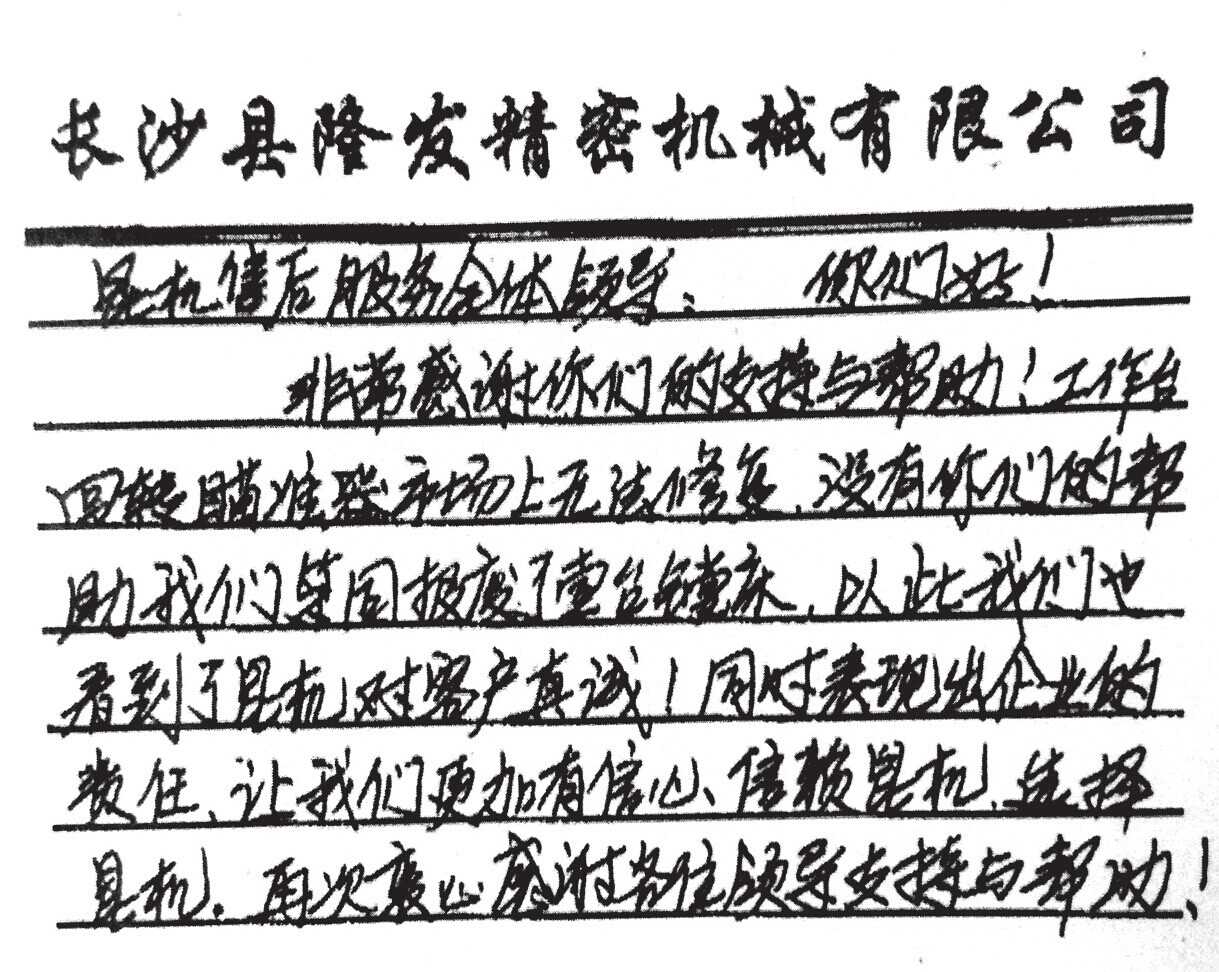 长沙县隆发精密机械有限公司
昆机售后服务全体领导： 你们好！
非常感谢你们的支持与帮助！工作台
回转瞄准器市场上无法修复、没有你们的帮
助我们等同报废了壹台镗床、以此我们也
看到了昆机对客户真诚！同时表现出企业的
责任、让我们更加有信心、信赖昆机、选择
昆机、再次衷心感谢各位领导支持与帮助！